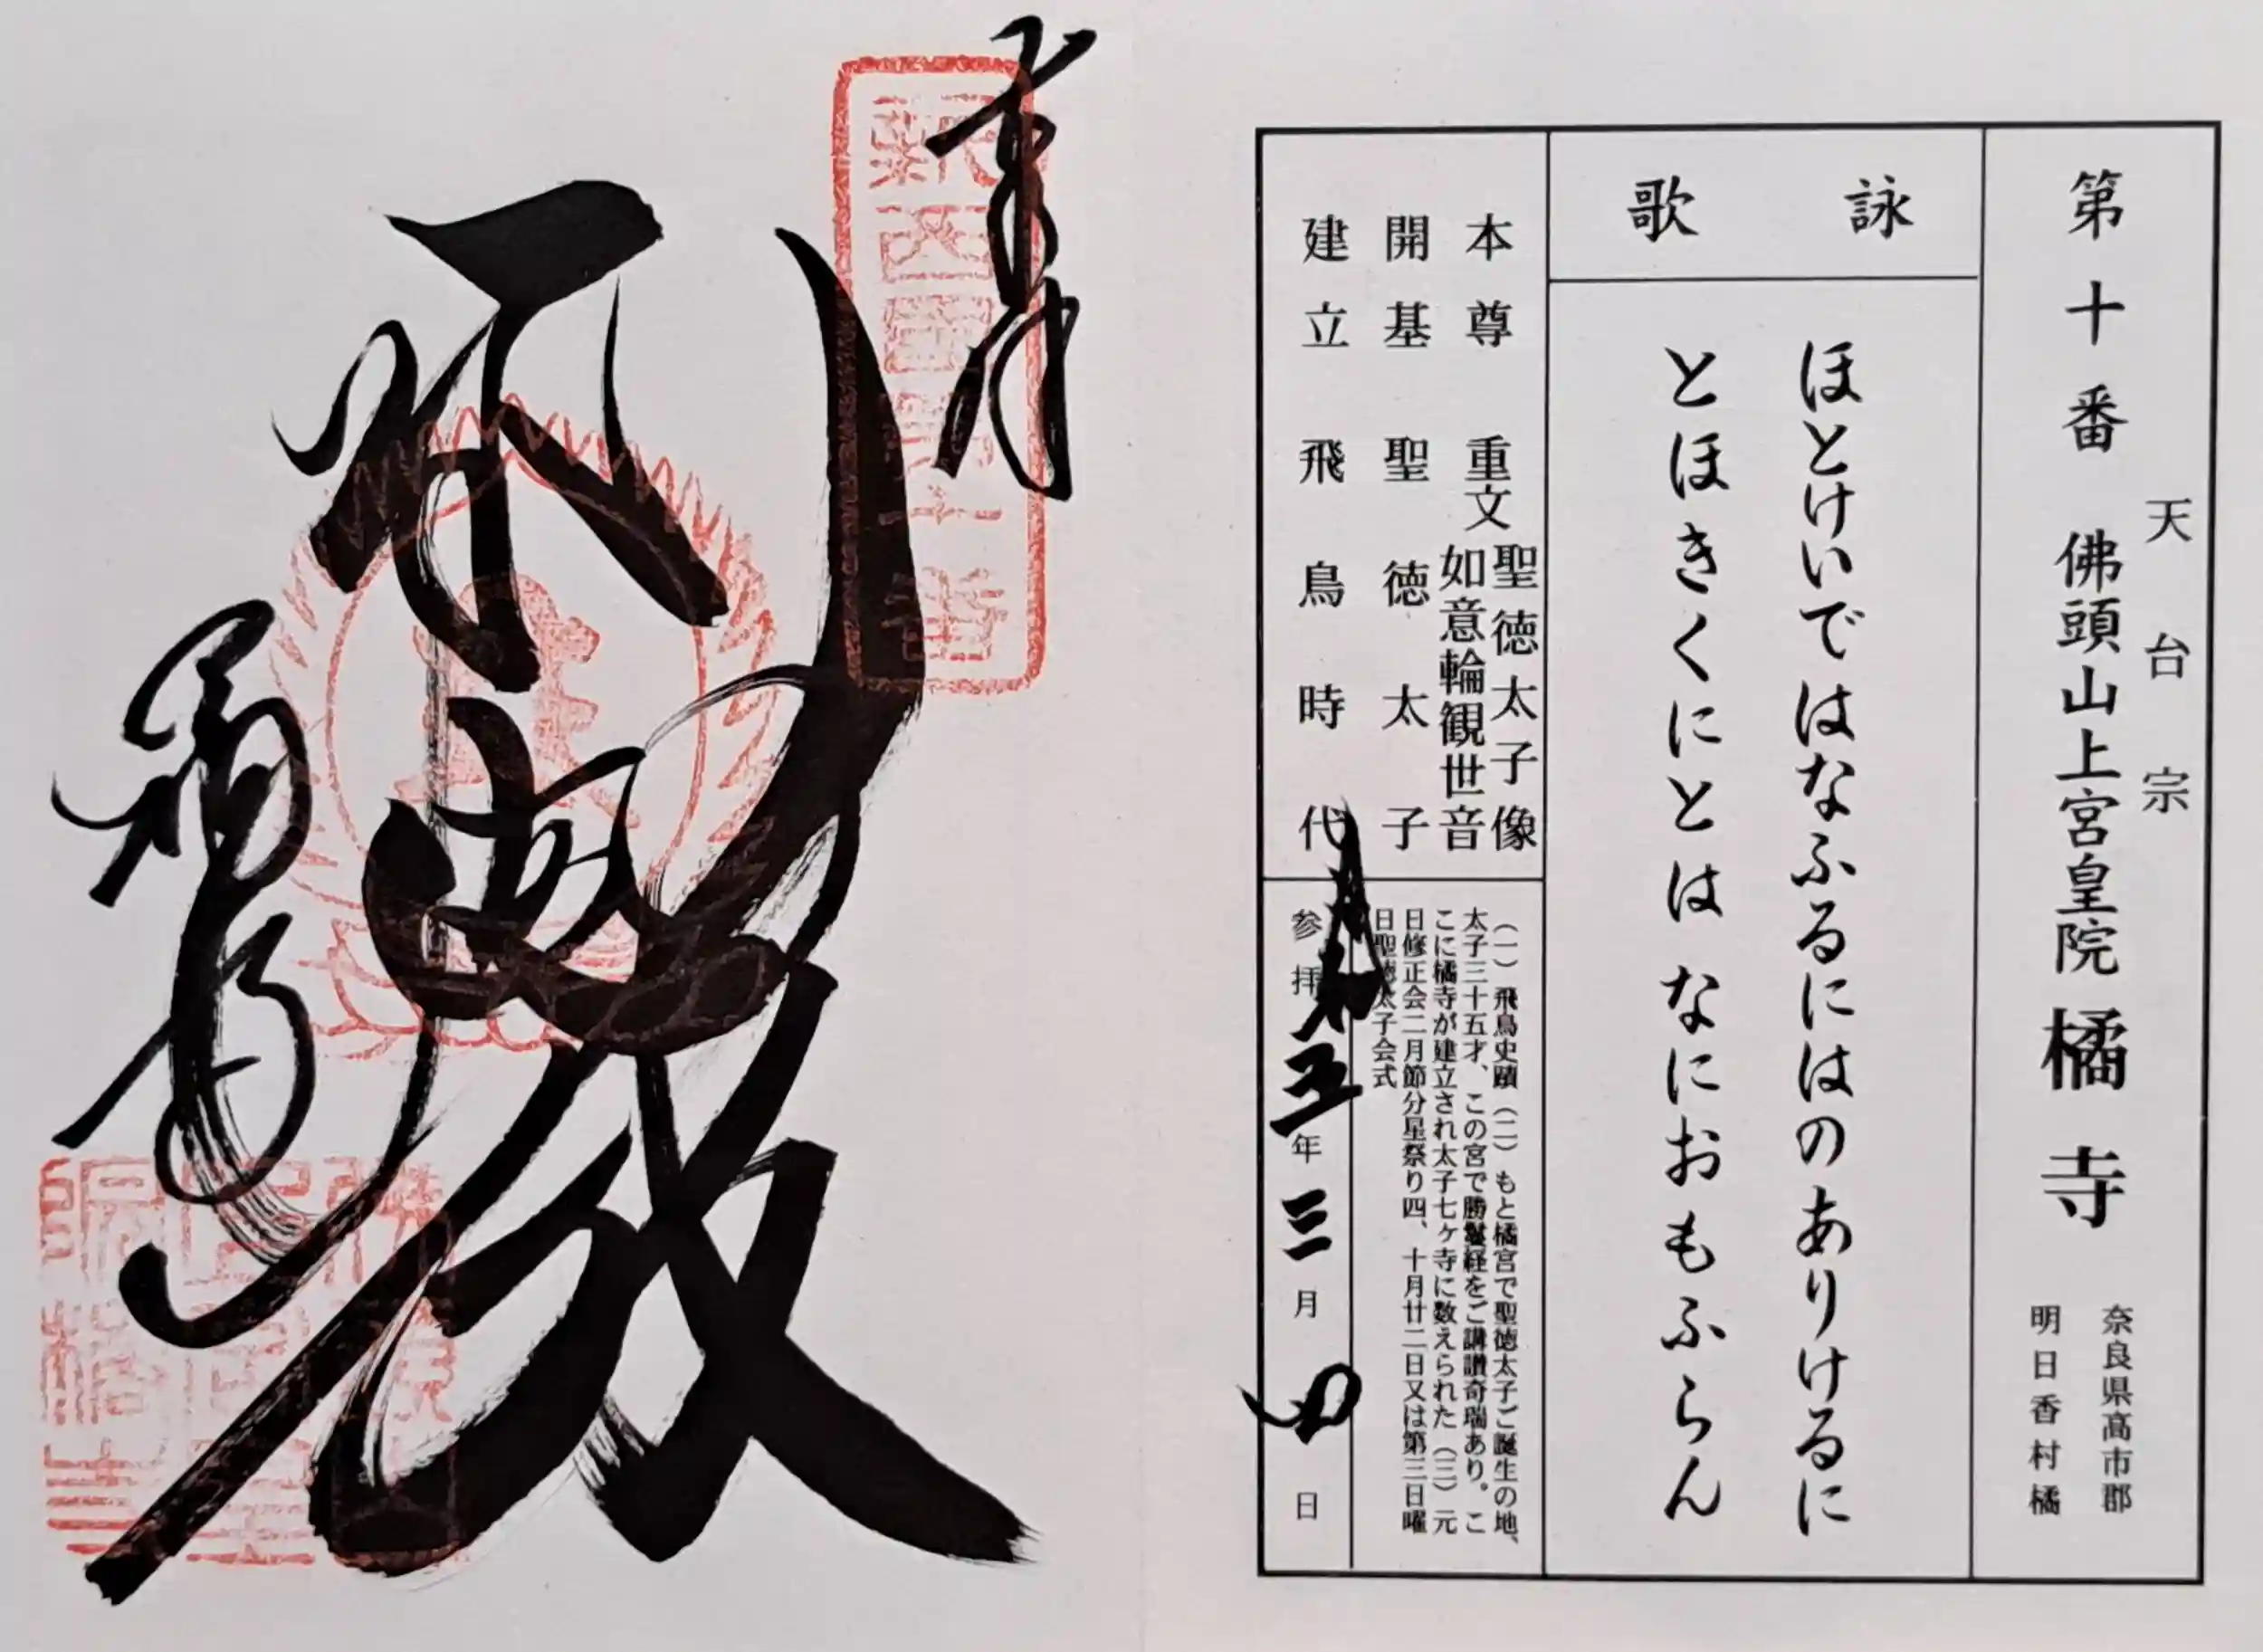 第十番 佛頭山上宮皇院 橘寺
天台宗
奈良県高市郡
明日香村橘
詠歌
ほとけいではなふるにはのありけるに
とほきくにとはなにおもふらん
本尊 重文 聖徳太子像
如意輪観世音
開基 聖徳太子
建立 飛鳥時代
(一)飛鳥史蹟(二)もと橘宮で聖徳太子ご誕生の地、
太子三十五才、この宮で勝鬘経をご講讃奇瑞あり。こ
こに橘寺が建立され太子七ヶ寺に数えられた(三)元
日修正会二月節分星祭り四、十月廿二日又は第三日曜
日聖徳太子会式
参拝 令和五年三月四日
奉拝
新西國第十番
橘寺